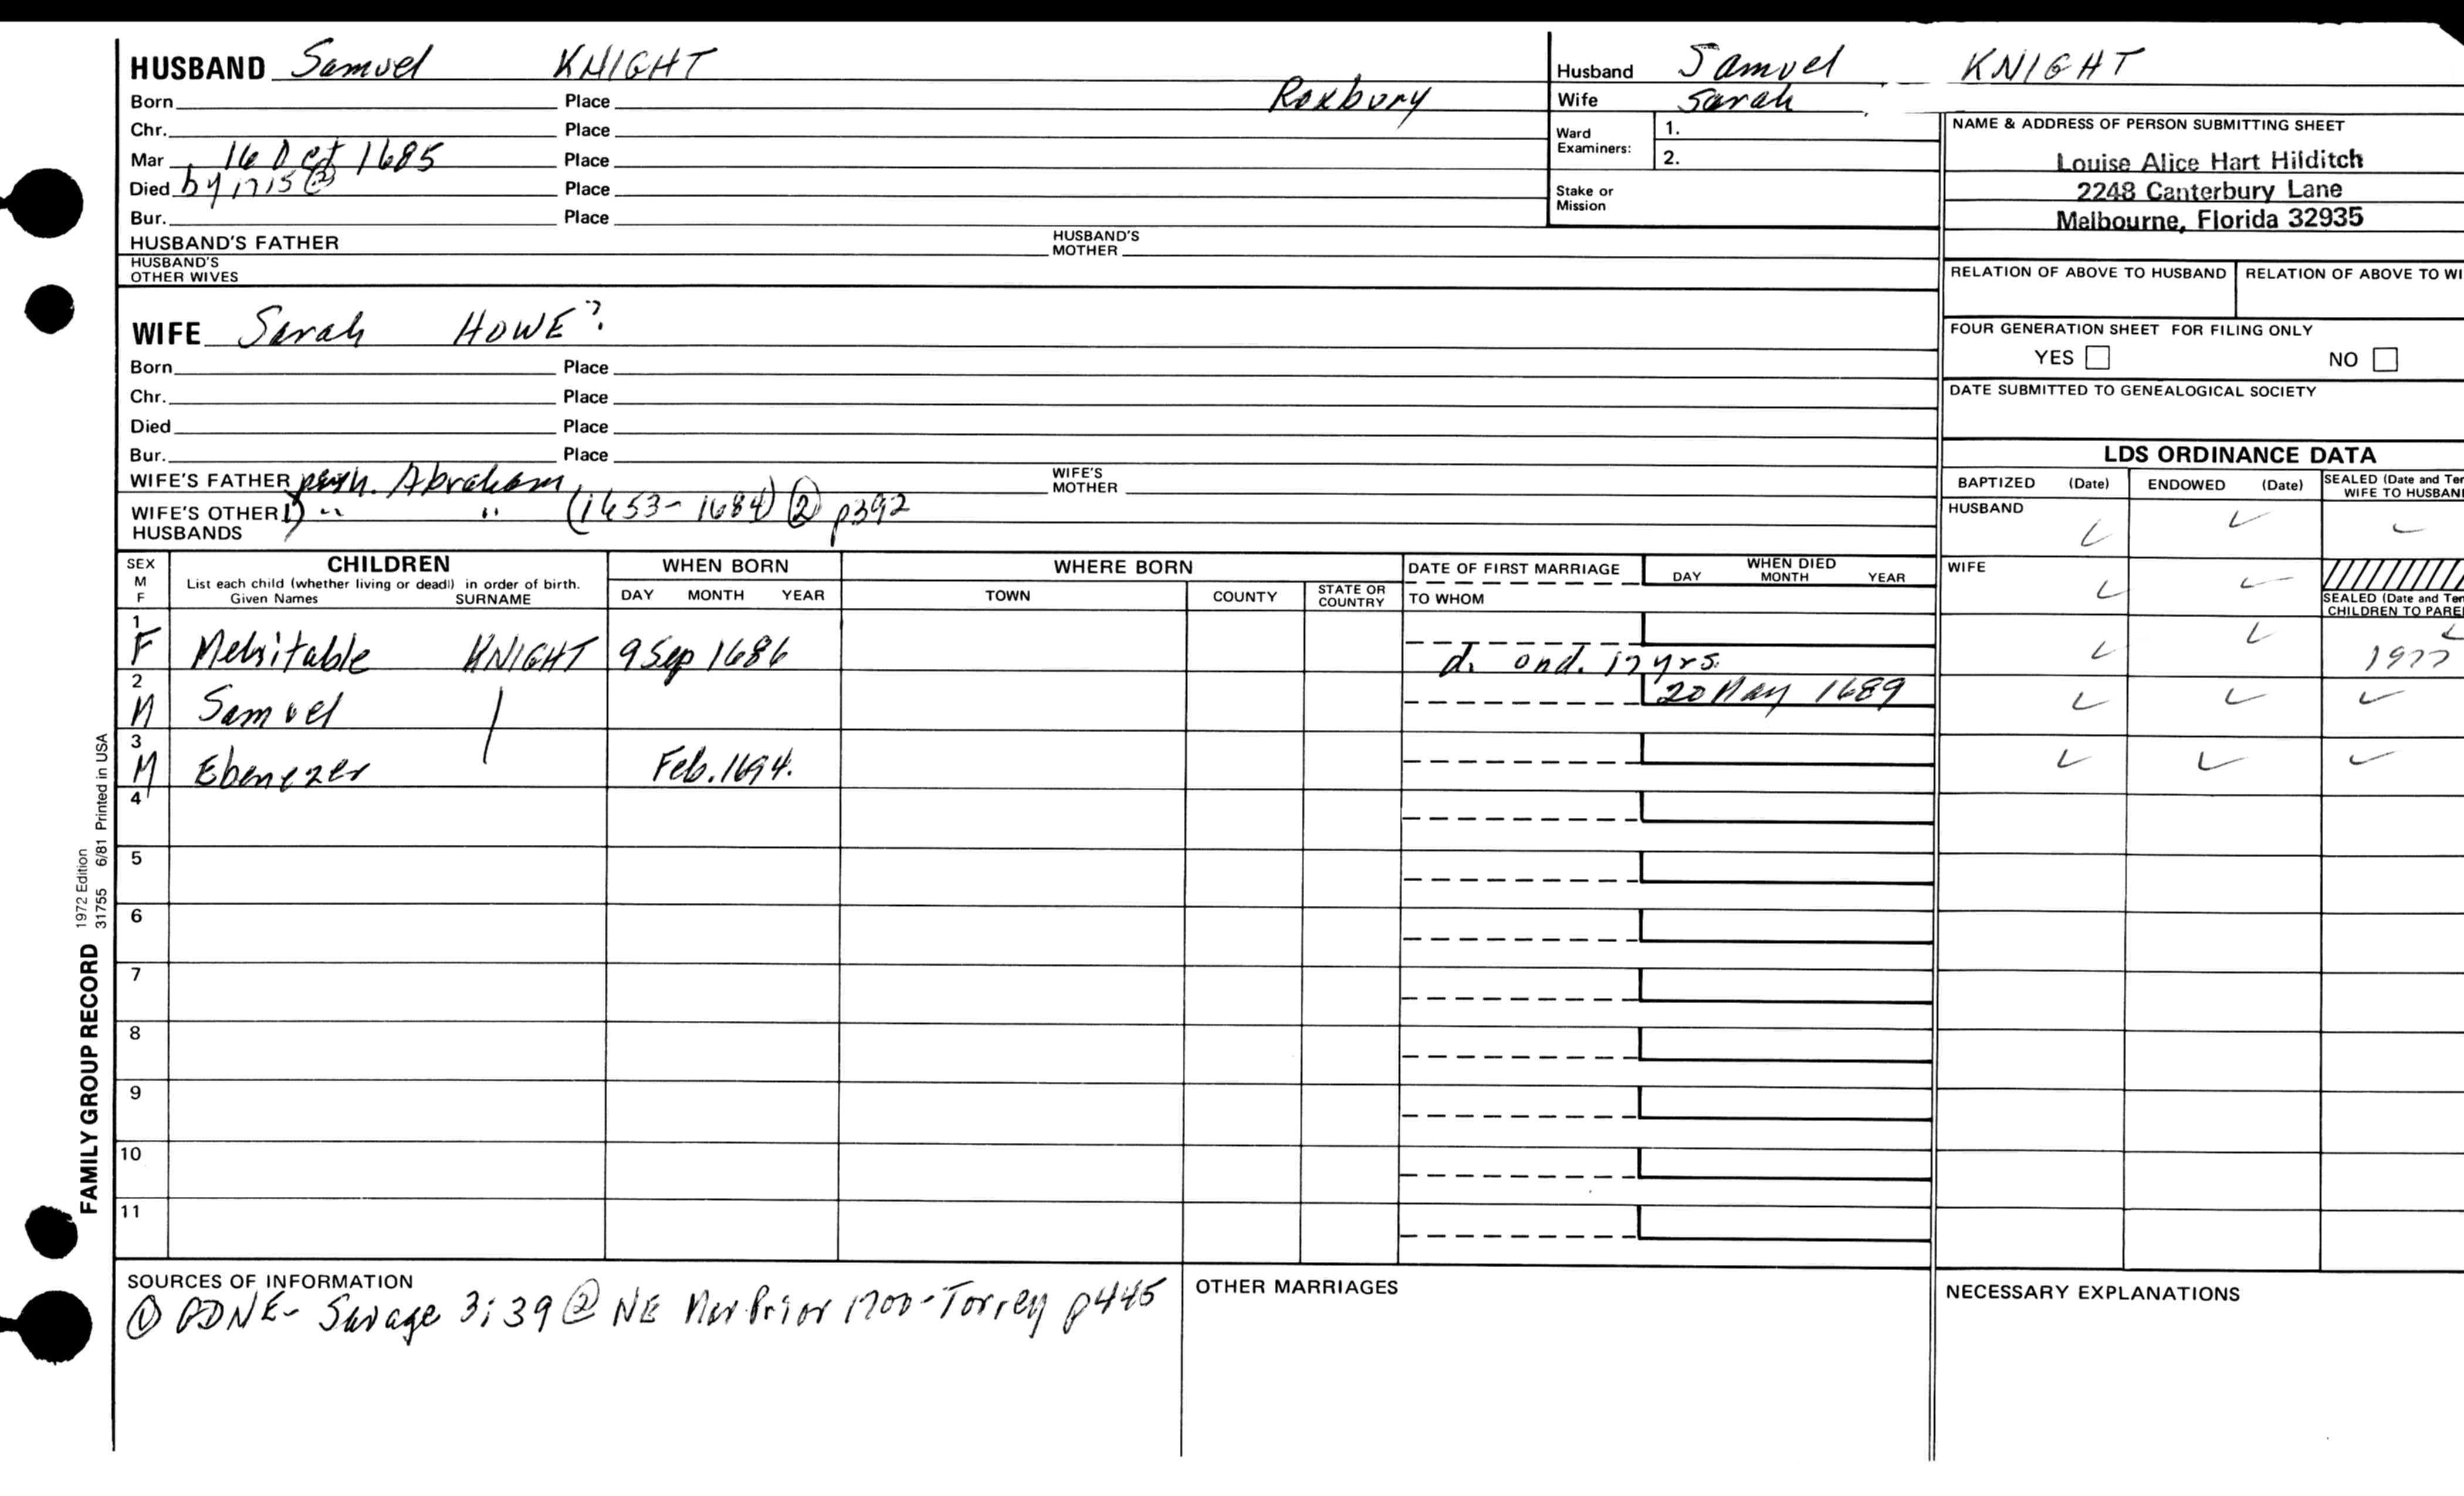 HUSBAND Samuel KNIGHT
Born Place Roxbury
Chr. Place
Mar 16 Oct 1685 Place
Died by 1715 ② Place
Bur. Place
HUSBAND'S FATHER HUSBAND'S MOTHER
HUSBAND'S OTHER WIVES
Husband Samuel KNIGHT
Wife Sarah
Ward Examiners: 1.
2.
Stake or Mission
NAME & ADDRESS OF PERSON SUBMITTING SHEET
Louise Alice Hart Hilditch
2248 Canterbury Lane
Melbourne, Florida 32935
RELATION OF ABOVE TO HUSBAND RELATION OF ABOVE TO WI
WIFE Sarah HOWE?
Born Place
Chr. Place
Died Place
Bur. Place
WIFE'S FATHER Abraham WIFE'S MOTHER
WIFE'S OTHER HUSBANDS 1) " " (1653-1684) ② p392
FOUR GENERATION SHEET FOR FILING ONLY
YES NO
DATE SUBMITTED TO GENEALOGICAL SOCIETY
LDS ORDINANCE DATA
BAPTIZED (Date) ENDOWED (Date) SEALED (Date and Ter
WIFE TO HUSBAN
HUSBAND
WIFE
SEALED (Date and Ter
CHILDREN TO PARE
SEX M F CHILDREN WHEN BORN WHERE BORN DATE OF FIRST MARRIAGE WHEN DIED
List each child (whether living or dead) in order of birth.
Given Names SURNAME DAY MONTH YEAR TOWN COUNTY STATE OR COUNTRY TO WHOM DAY MONTH YEAR
1 F Mehitable KNIGHT 9 Sep 1686 d. 17 yrs. 1977
2 M Samuel 20 May 1689
3 M Ebenezer Feb. 1694.
4
5
6
7
8
9
10
11
FAMILY GROUP RECORD 1972 Edition
31755 6/81 Printed in USA
SOURCES OF INFORMATION
① GDNE- Savage 3:39 ② NE Mar Prior 1700-Torrey p445
OTHER MARRIAGES
NECESSARY EXPLANATIONS